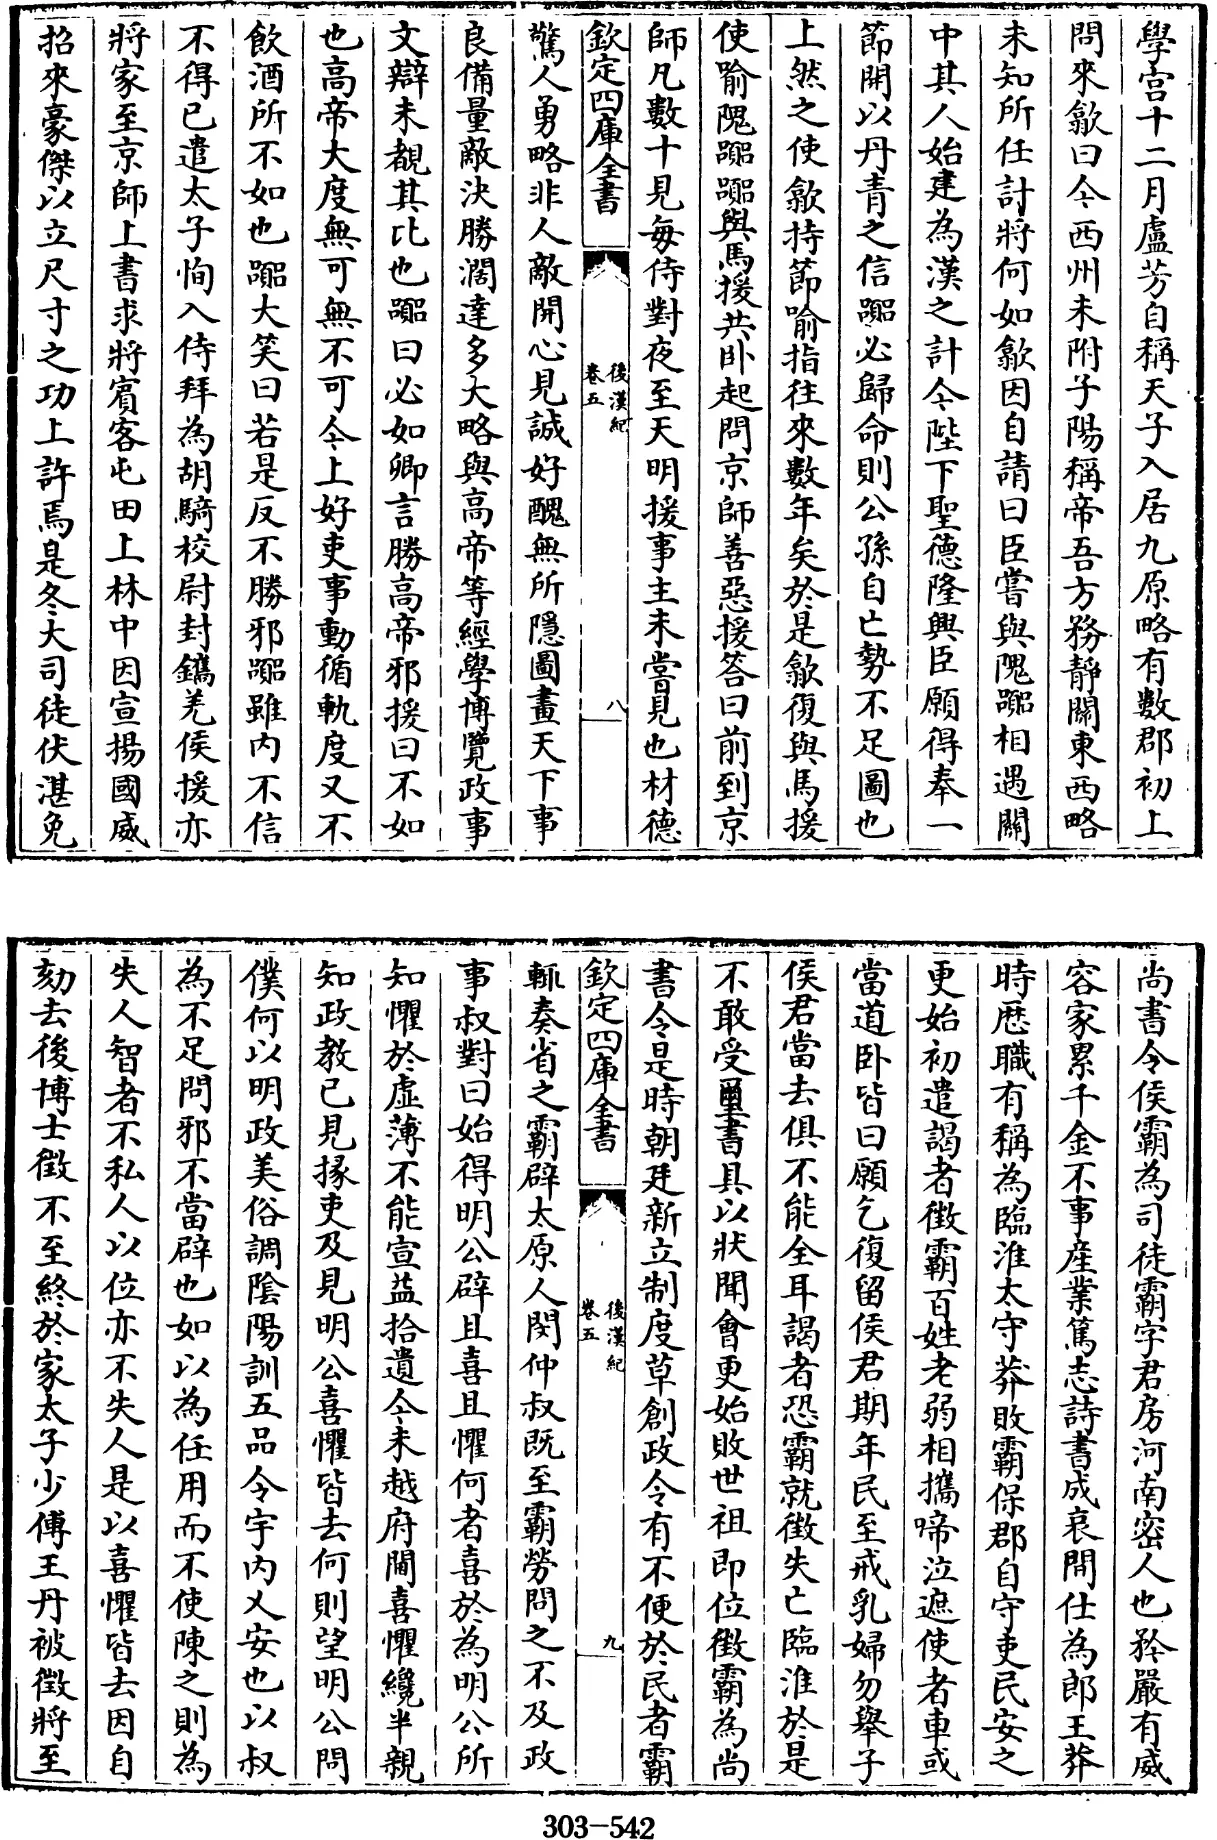 學宫十二月盧芳自稱天子入居九原略有數郡初上
問來歙曰今西州未附子陽稱帝吾方務靜關東西略
未知所任計將何如歙因自請曰臣嘗與隗囂相遇關
中其人始建為漢之計今陛下聖德隆興臣願得奉一
節開以丹青之信囂必歸命則公孫自亡勢不足圖也
上然之使歙持節喻指往來數年矣於是歙復與馬援
使喻隗囂囂與馬援共卧起問京師善惡援答曰前到京
師凡數十見每侍對夜至天明援事主未嘗見也材德
欽定四庫全書
後漢紀
卷五
八
驚人勇略非人敵開心見誠好醜無所隱圖畫天下事
良備量敵決勝濶達多大略與高帝等經學博覽政事
文辯未覩其比也囂曰必如卿言勝高帝邪援曰不如
也高帝大度無可無不可今上好吏事動循軌度又不
飲酒所不如也囂大笑曰若是反不勝邪囂雖内不信
不得已遣太子恂入侍拜為胡騎校尉封鐫羌侯援亦
將家至京師上書求將賓客屯田上林中因宣揚國威
招來豪傑以立尺寸之功上許焉是冬大司徒伏湛免
尚書令侯霸為司徒霸字君房河南密人也矜嚴有威
容家累千金不事産業篤志詩書成哀間仕為郎王莽
時歴職有稱為臨淮太守莽敗霸保郡自守吏民安之
更始初遣謁者徴霸百姓老弱相攜啼泣遮使者車或
當道卧皆曰願乞復留侯君期年民至戒乳婦勿舉子
侯君當去俱不能全耳謁者恐霸就徴失亡臨淮於是
不敢受璽書具以狀聞會更始敗世祖即位徴霸為尚
書令是時朝廷新立制度草創政令有不便於民者霸
欽定四庫全書
後漢紀
卷五
九
輒奏省之霸辟太原人閔仲叔既至霸勞問之不及政
事叔對曰始得明公辟且喜且懼何者喜於為明公所
知懼於虚薄不能宣益拾遺今未越府閫喜懼纔半親
知政教已見掾吏及見明公喜懼皆去何則望明公問
僕何以明政美俗調陰陽訓五品令宇内乂安也以叔
為不足問邪不當辟也如以為任用而不使陳之則為
失人智者不私人以位亦不失人是以喜懼皆去因自
劾去後博士徴不至終於家太子少傅王丹被徴將至
303-542